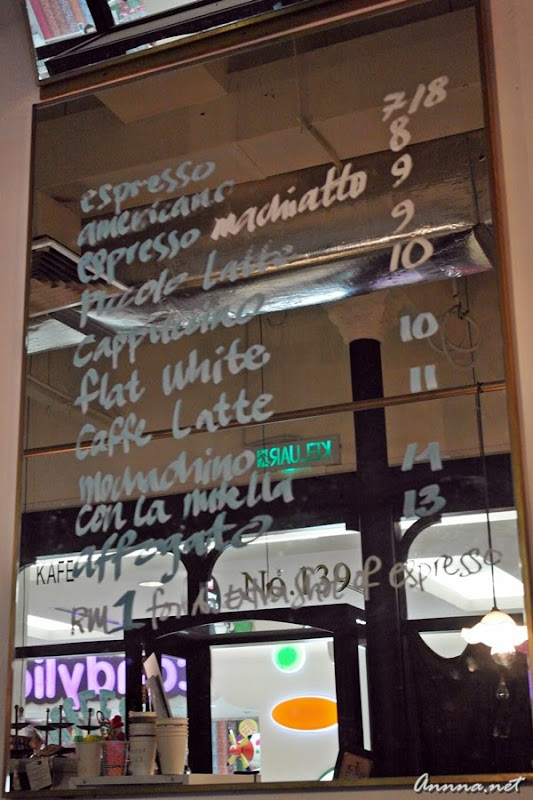 espresso 7/8
americano 8
espresso machiatto 9
piccolo Latte 9
cappuccino 10
flat white 10
Caffe Latte 11
mochachino
con la nutella 14
affogato 13
KELUAR
KAFE No.139
RM 1 for extra shot of espresso
Annna.net